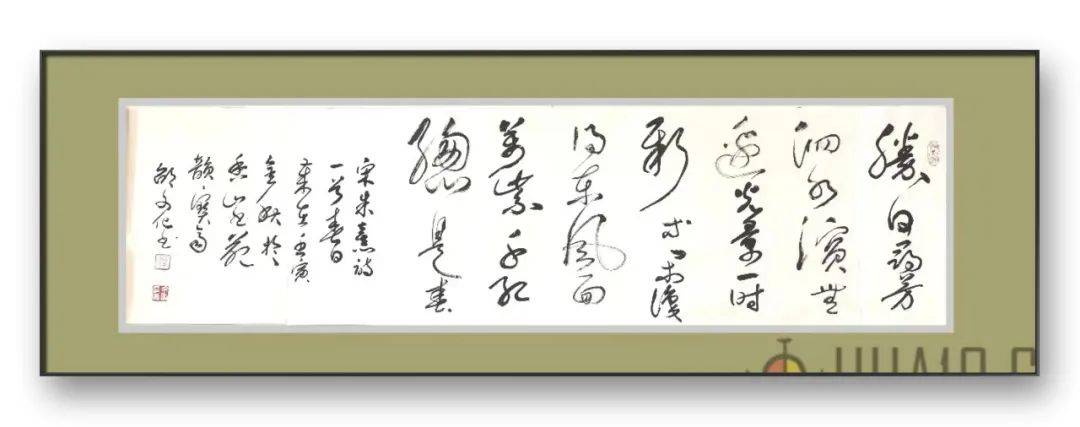 勝日尋芳
泗水濱無
邊光景一时
新等閒識
得東風面
萬紫千紅
總是春
宋朱熹詩
一首春日
歲在壬寅
金秋於
香山
韻寶齋
邵文化書